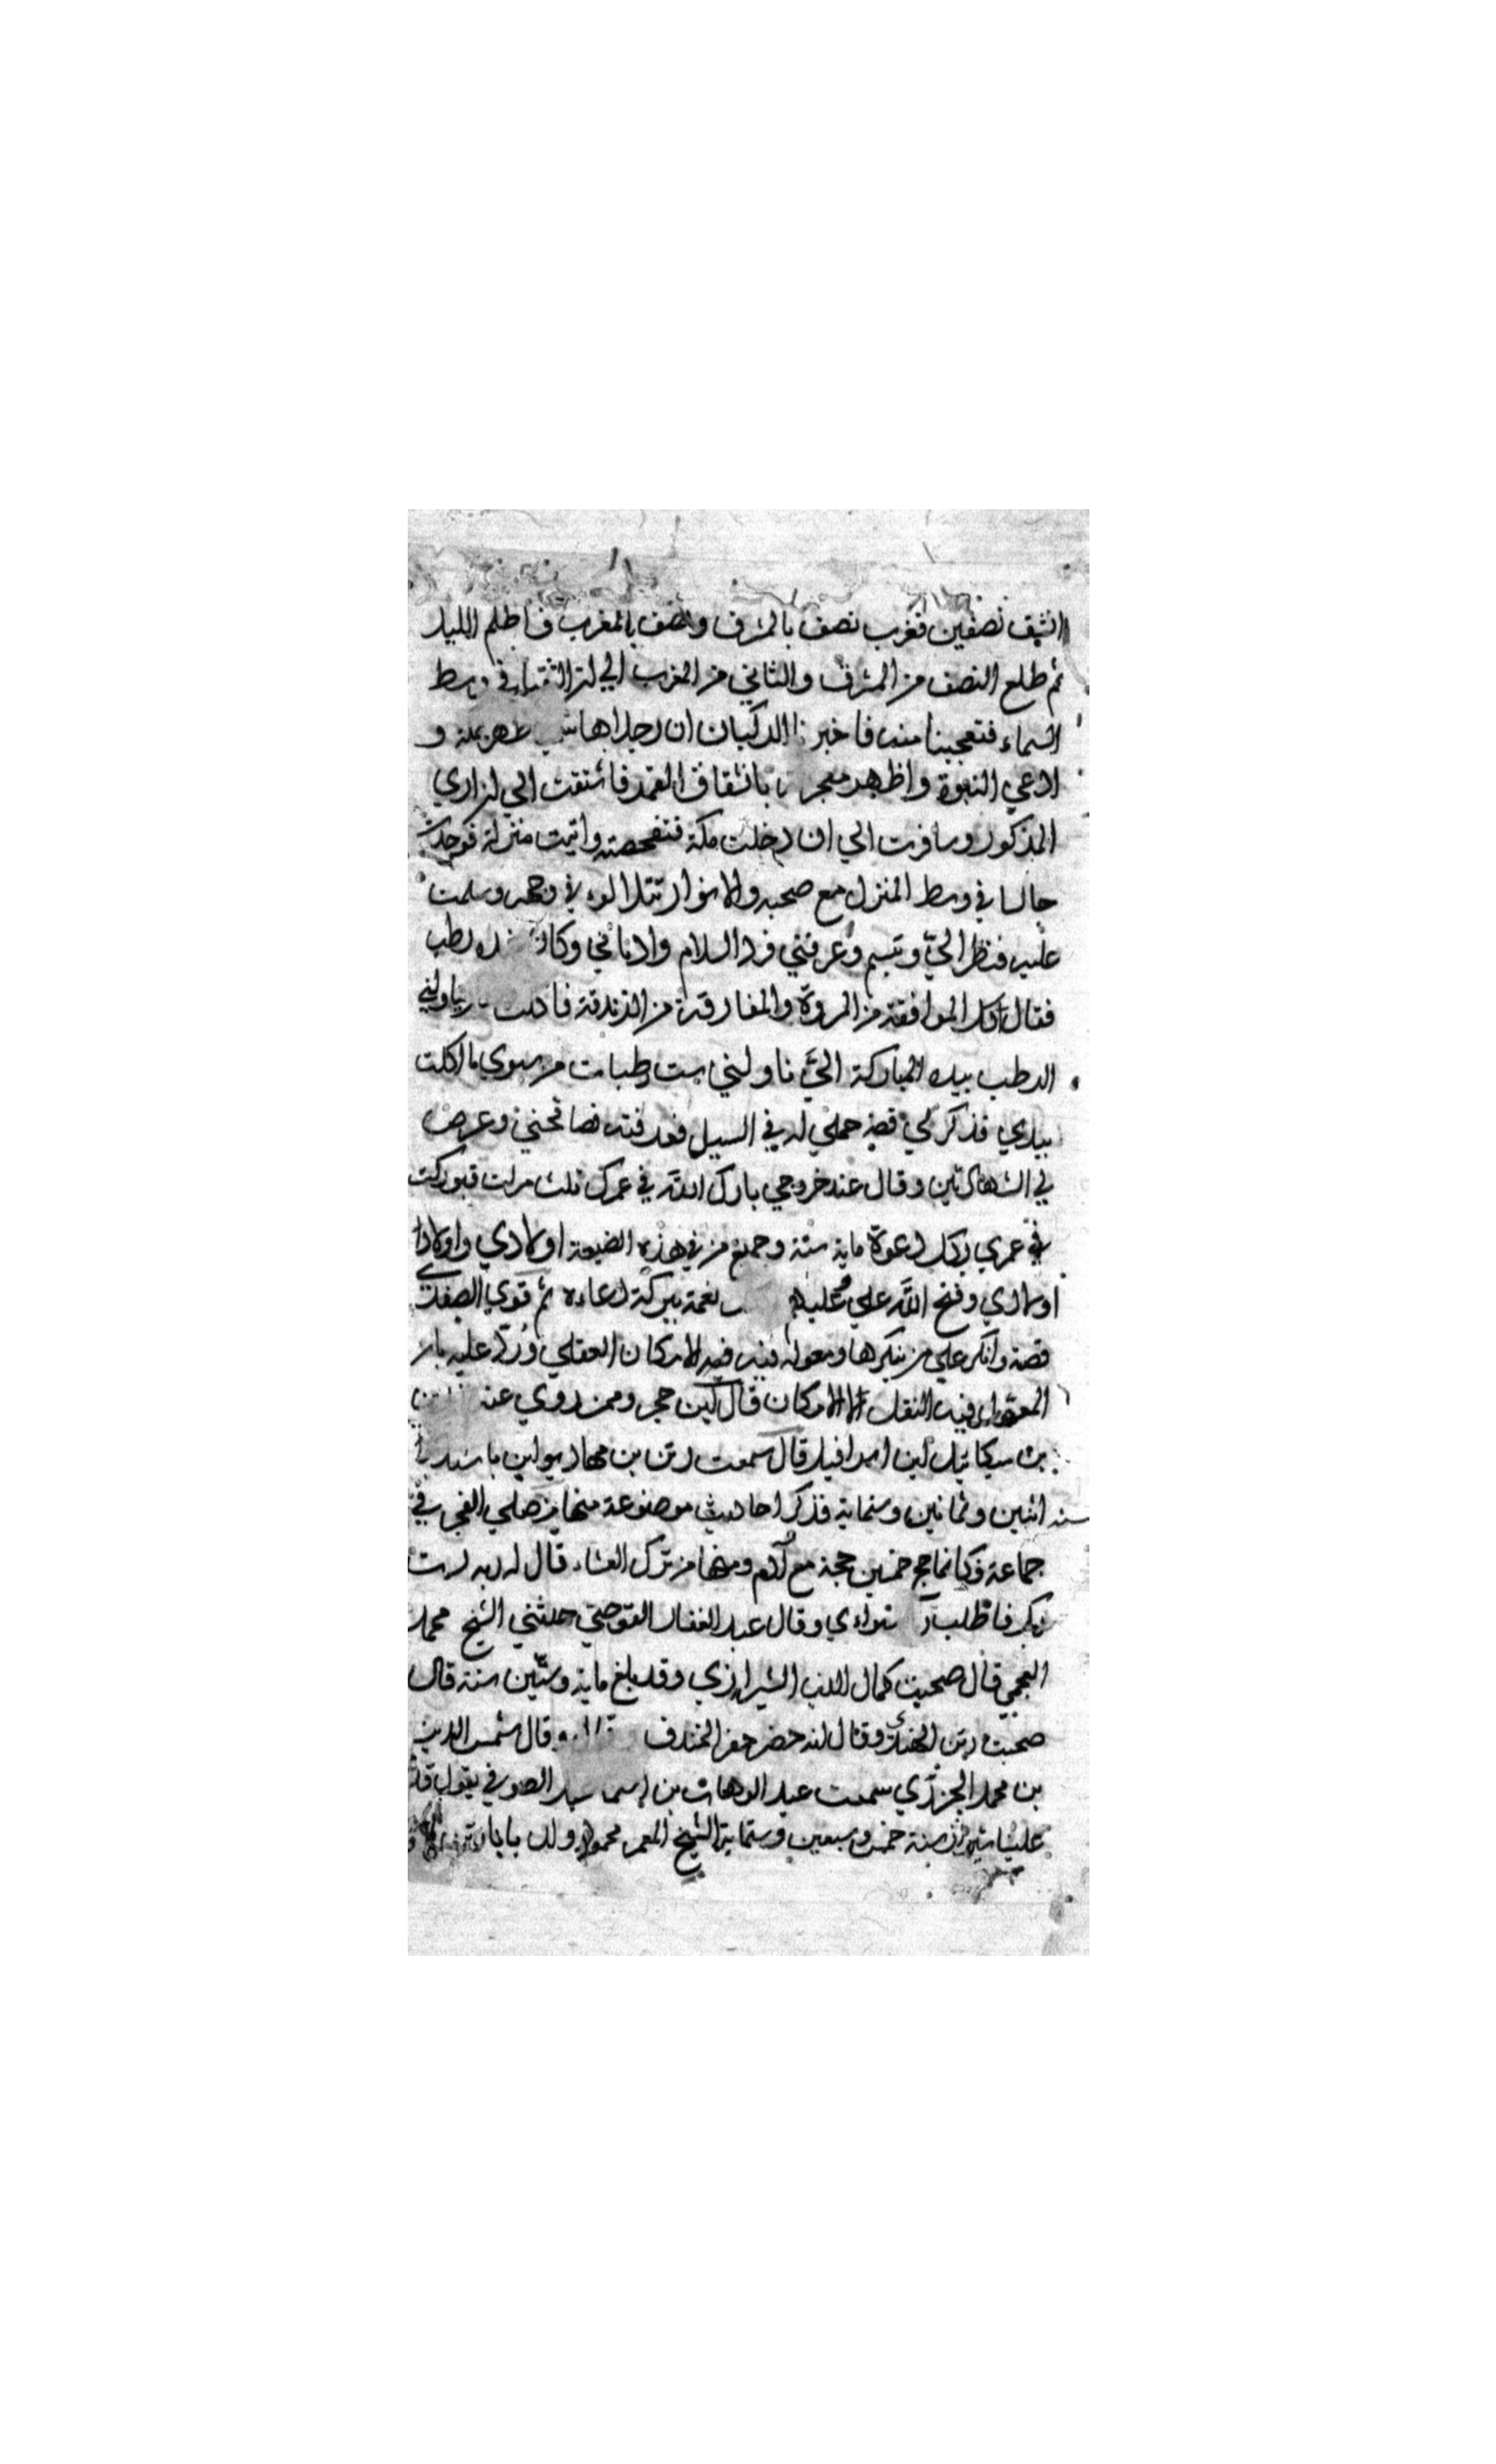 انشق نصفين فغرب نصف بالمشرق ونصف بالمغرب فاظلم الليل
ثم طلع النصف من المشرق والثاني من المغرب الي ان التقيا في وسط
السماء فتعجبنا منه فاخبرنا الركبان ان رجلا هاشميا ظهر بمكة و
ادعي النبوة واظهر معجزته بانشقاق القمر فاشتقت الي ان اري
المذكور وسافرت الي ان دخلت مكة فتفحصته واتيت منزله فوجدته
جالسا في وسط المنزل مع صحبه والانوار تتلالوء في وجهه وسلمت
عليه فنظر الي وتبسم وعرفني فرد السلام وادناني وكان رطب
فقال كل الموافقة من المروة والمفارقة من الزندقة فاكلت يناولني
الرطب بيده المباركة الي ناولني ست رطبات من سوي ما اكلت
بيدي فذكر لي قصة حملي له في السيل فعرفته فصافحني وعرض
لي الشهادتين وقال عند خروجي بارك الله في عمرك ثلث مرات فبوركت
في عمري بكل دعوة ماية سنة وجميع من في هذه الضيعة اولادي واولاد
اولادي وفتح الله علي وعليهم نعمة ببركة دعاءه ثم قوي الصفدي
قصة وانكر علي من ينكرها ومعوله فيه الامكان العقلي ورد عليه بان
المعول فيه النقل لا الامكان قال ابن حجر وممن روي عنه
بن ميكائيل ابن اسرافيل قال سمعت رتن بن مهاديو ابن باسديو
سنة اثنين وثمانين وستماية فذكر احاديث موضوعة منها من صلي الفجر في
جماعة فكانما حج خمسين حجة مع آدم ومنها من ترك العشاء قال له ربه لست
ربك فاطلب سواءي وقال عبد الغفار القوصي حدثني الشيخ محمد
العجمي قال صحبت كمال الدين الشيرازي وقد بلغ ماية وستين سنة قال
صحبت رتن الهندي وقال انه حضر حفر الخندق وقال شمس الدين
بن محمد الجزري سمعت عبد الوهاب بن اسماعيل الصوفي يقول قدم
علينا شيراز سنة خمس وسبعين وستماية الشيخ المعمر محمود ولد بابا رتن